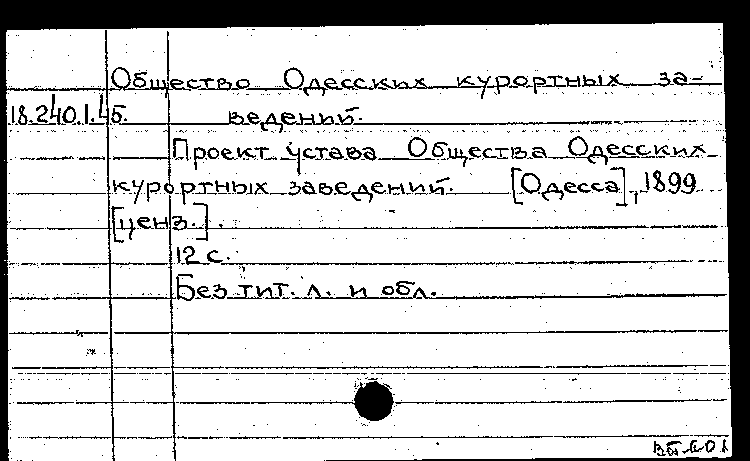 Общество Одесских курортных за-
18.240.1.45. ведений.
Проект устава Общества Одесских
курортных заведений. [Одесса], 1899
[ценз.].
12 с.
Без тит. л. и обл.